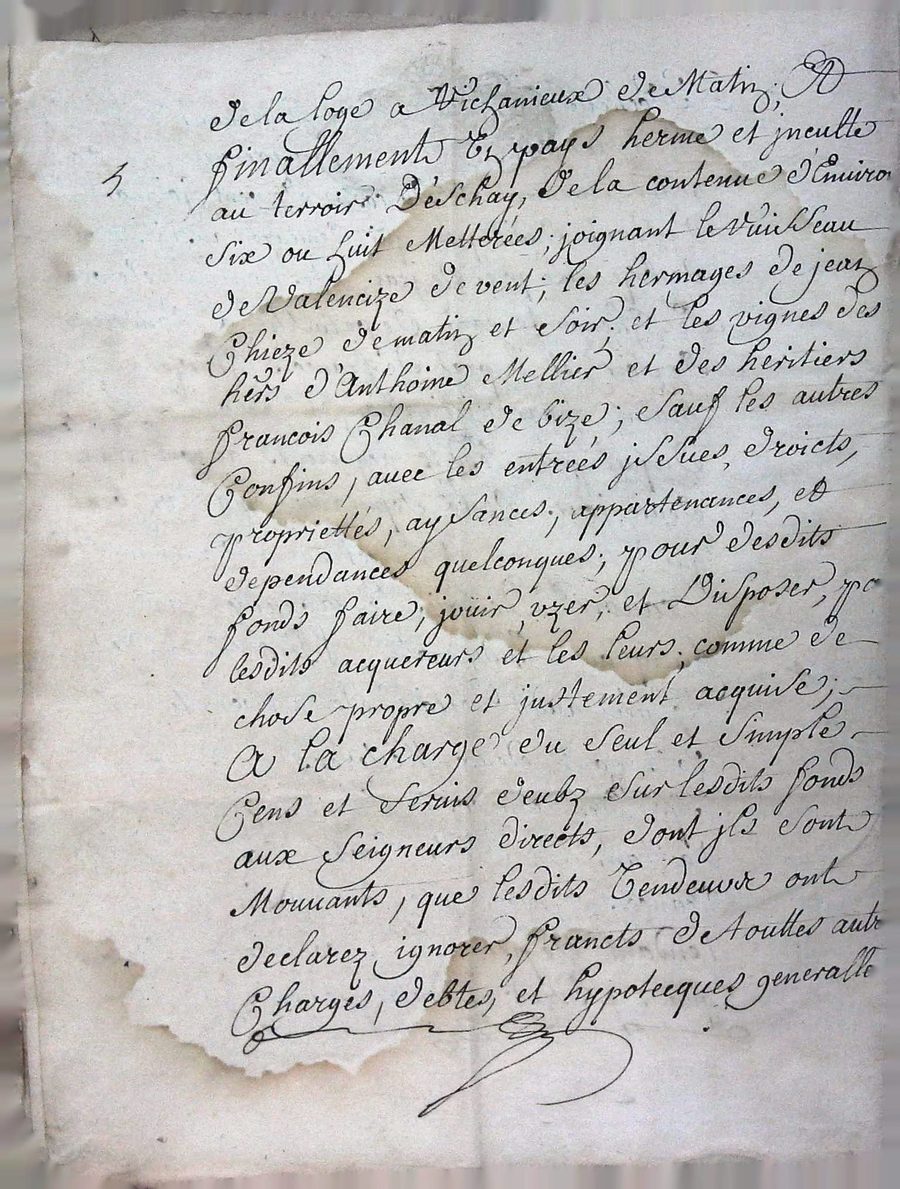 de la loge a Vichanieux de Matin; Et
finallement Un pays herme et jnculte
5
au terroir D'éschay, de la contenue d'Enuiron
six ou huit Metterées; joignant le Vuisseau
de Valencize de vent; les hermages de jean
Chieze de matin et soir; et les vignes des
hers d'Anthoine Mellier et des heritiers
francois Chanal de bize; sauf les autres
Confins, auec les entrées jssues, droicts,
propriettés, aysances, appartenances, et
dependances quelconques; pour desdits
fonds faire, jouir, vzer, et Disposer, p
lesdits acquereurs et les leurs, comme de
chose propre et justement acquise;
A la charge du seul et simple
Cens et seruis deubz sur lesdits fonds
aux seigneurs directs, dont jls sont
Mouuants, que lesdits Vendeurs ont
declarez ignorer, francts de touttes autr
Charges, debtes, et hypotecques generalle